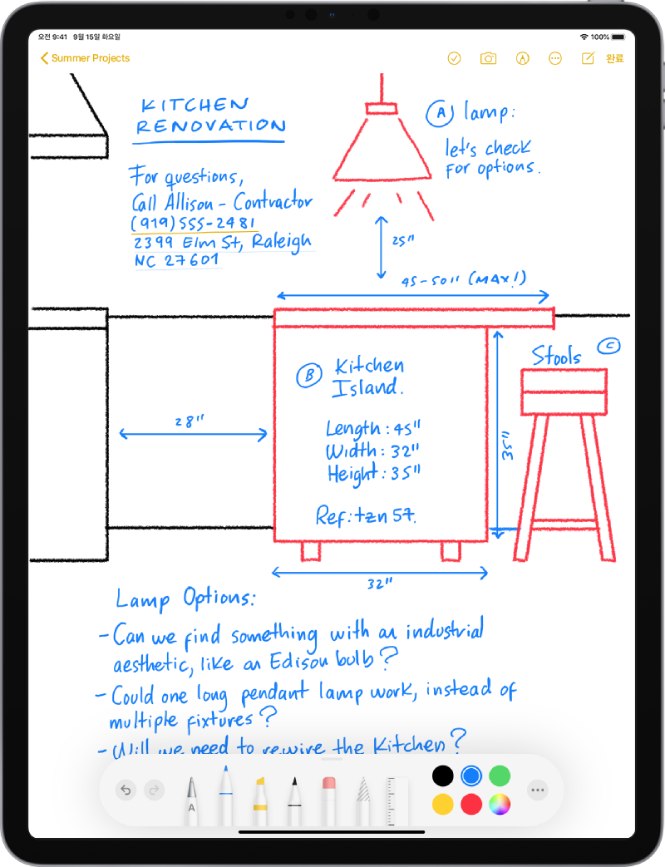 오전 9:41 9월 15일 화요일
100%
Summer Projects
완료
KITCHEN
RENOVATION
For questions,
Call Allison - Contractor
(919)555-2481
2399 Elm St, Raleigh
NC 27601
A lamp:
let's check
for options.
25"
45-50" (MAX!)
B Kitchen
Island.
Length: 45"
Width: 32"
Height: 35"
Ref: tzn 57.
28"
35"
Stools C
32"
Lamp Options:
- Can we find something with an industrial
aesthetic, like an Edison bulb?
- Could one long pendant lamp work, instead of
multiple fixtures?
- Will we need to rewire the kitchen?
A